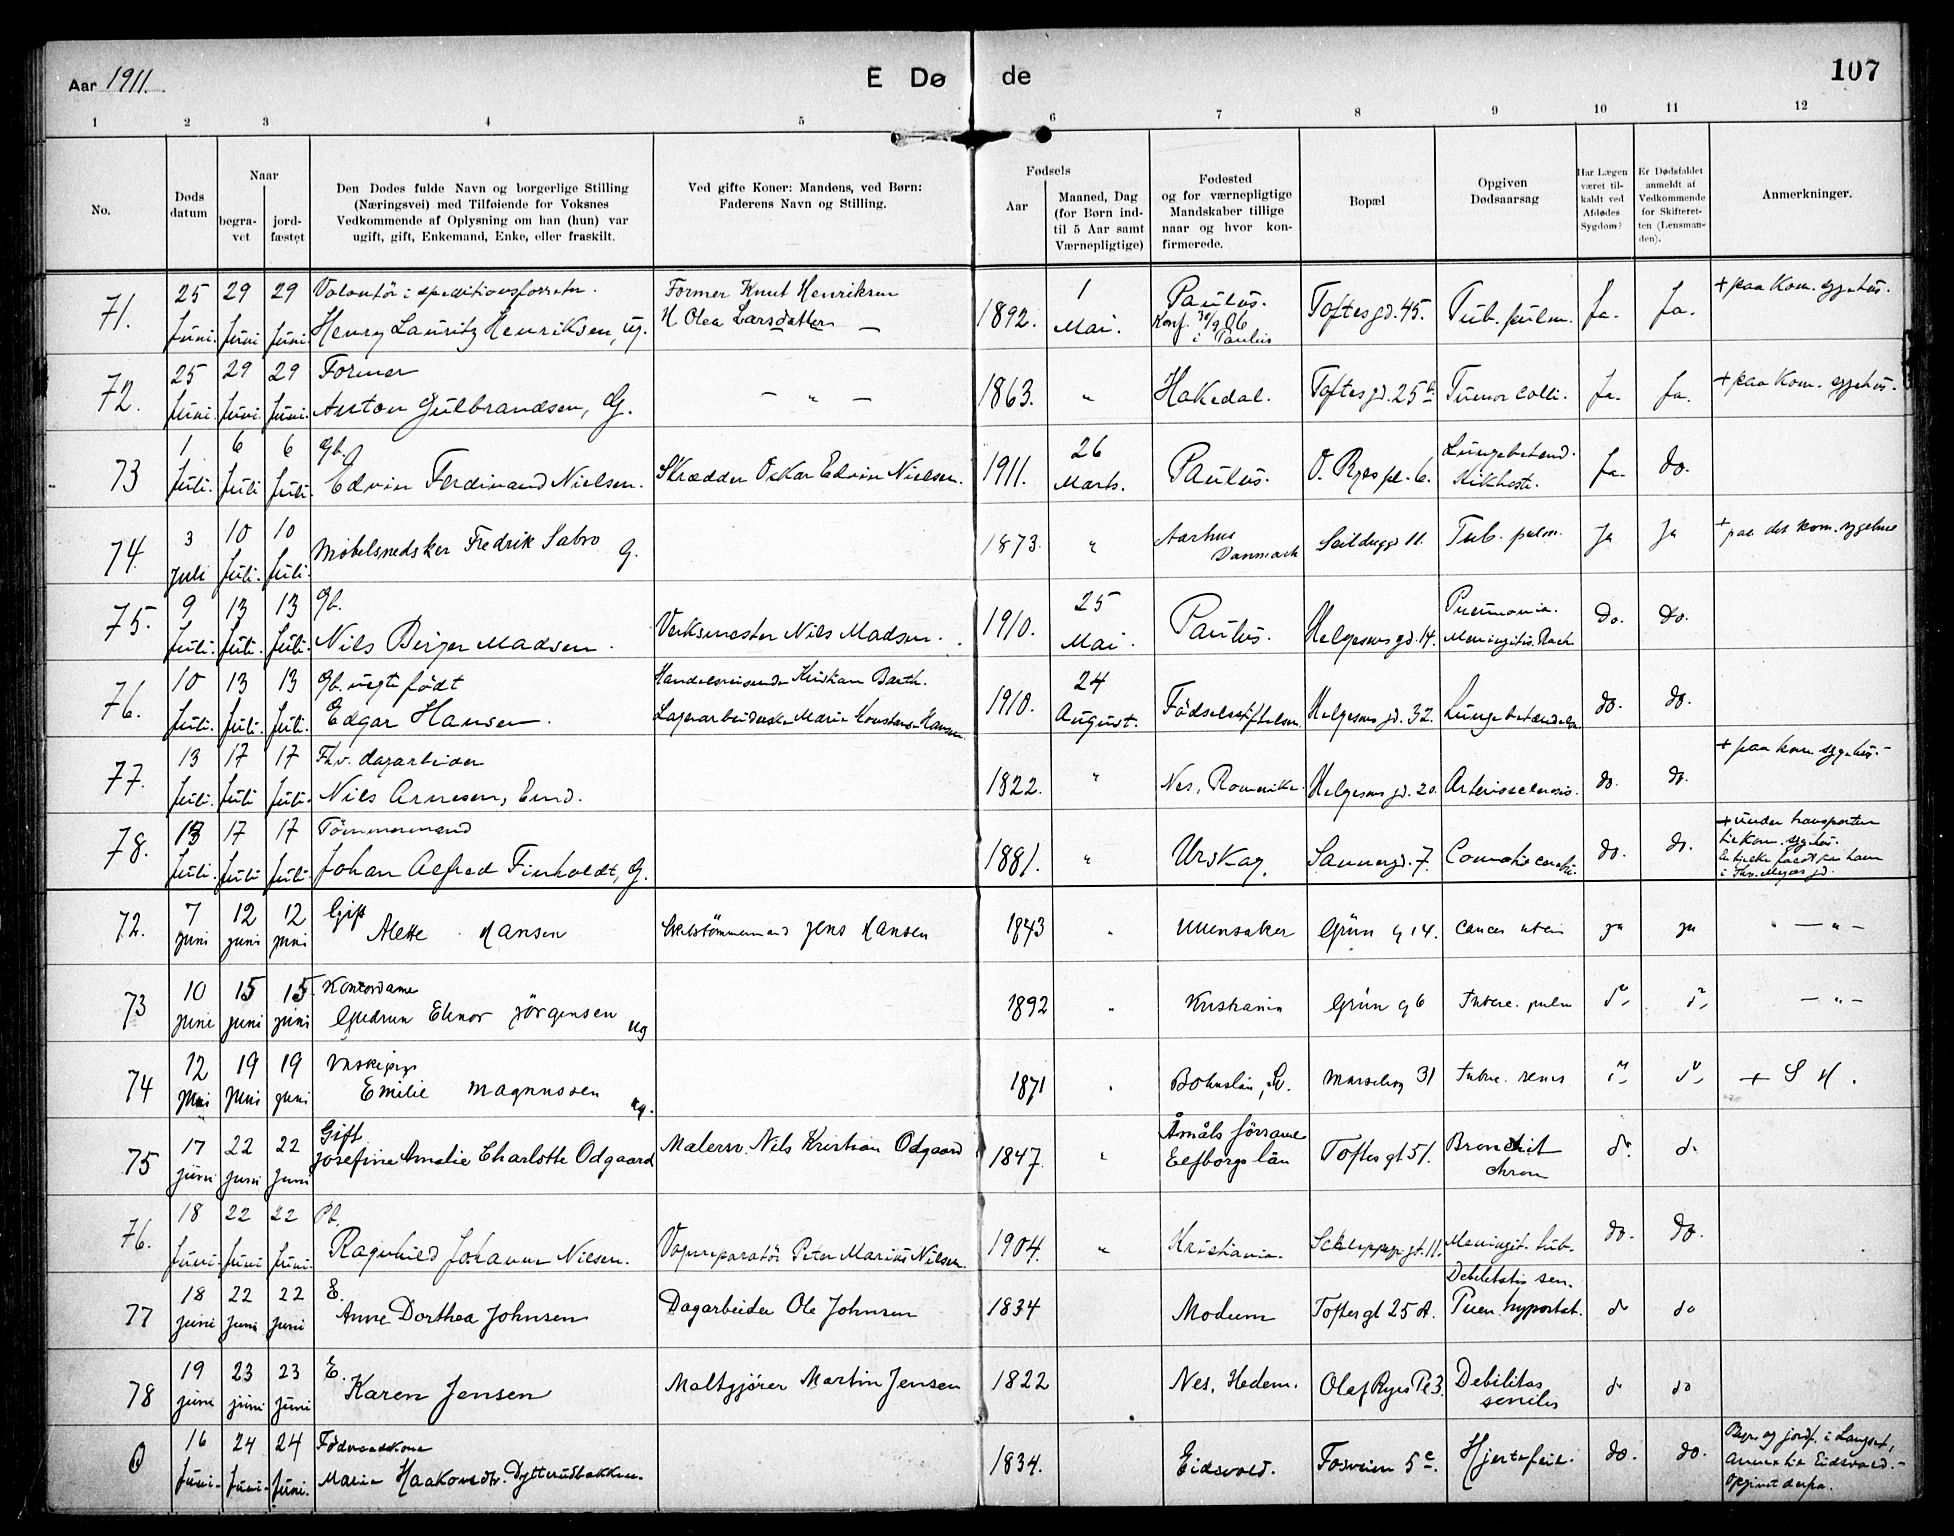 Aar 1911.
E Døde
107
1 2 3 4 5 6 7 8 9 10 11 12
No.
Døds datum
Naar
begra-vet
jord-fæstet
Den Dødes fulde Navn og borgerlige Stilling
(Næringsvei) med Tilføiende for Voksnes
Vedkommende af Oplysning om han (hun) var
ugift, gift, Enkemand, Enke, eller fraskilt.
Ved gifte Koner: Mandens, ved Børn:
Faderens Navn og Stilling.
Fødsels
Aar
Maaned, Dag
(for Børn ind-
til 5 Aar samt
Værnepligtige)
Fødested
og for værnepligtige
Mandskaber tillige
naar og hvor kon-
firmerede.
Bopæl
Opgiven
Dødsaarsag
Har Lægen
været til-
kaldt ved
Afdødes
Sygdom?
Er Dødsfaldet
anmeldt af
Vedkommende
for Skifteret-
ten (Lensman-
den).
Anmerkninger.
25 29 29 Volontör i speditionsforretn. Former Knut Henriksen 1 Paulus. + paa Kom. sygehus.
71. Juni. Juni Juni. Henry Lauritz Henriksen, ug. H Olea Larsdatter 1892. Mai. Konf. 30/9 06 i Paulus Toftesgd. 45. Tub. pulm. Ja. Ja.
25 29 29 Former
72. Juni. Juni. Juni. Anton Gulbrandsen, G. — „ — 1863. „ Hakedal. Toftesgd. 25 b. Tumor colli. Ja. Ja. + paa Kom. sygehus.
1 6 6 Gb. 26 Lungebetænd.
73 Juli. Juli Juli. Edvin Ferdinand Nielsen. Skrædder Oskar Edvin Nielsen. 1911. Marts. Paulus. O. Ryes pl. 6. Kikhoste. Ja. do.
3 10 10
74. Juli Juli. Juli. Møbelsnedsker Fredrik Sabro G. 1873. „ Aarhus Danmark Seildugsg 11. Tub. pulm. Ja Ja + paa det kom. sygehus
9 13 13 Gb. 25 Pneumonia.
75. Juli. Juli. Juli. Nils Birger Madsen. Verksmester Nils Madsen. 1910. Mai. Paulus. Helgesens gd. 14. Meningitis. Rach do. do.
10 13 13 Gb. uegte født Handelsreisende Kristian Barth. 24
76. Juli. Juli. Juli. Edgar Hansen. Lagerarbeiderske Marie Konstanse Hansen. 1910. August. Fødselsstiftelsen. Helgesens gd. 32. Lungebetændelse do. do.
13 17 17 Fhv. dagarbeider + paa kom. sygehus.
77. Juli. Juli Juli. Nils Arnesen, Emd. 1822. „ Nes, Romerike. Helgesens gd. 20. Arteriosclerosis. do. do.
13 17 17 Tömmermand + under transporten til Kom. sygehus.
78. Juli. Juli Juli. Johan Alfred Finholdt, G. 1881. „ Urskog. Sannergd. 7. do. do. i Thv. Meyers gd.
72. 7 juni 12 juni 12 juni Gift Alette Hansen Skibstömmermand Jens Hansen 1843 Ullensaker Grün g 14. Cancer uteri ja ja — „ —
73 10 juni 15 juni 15 juni Kontordame Gudrun Elenor Jörgensen ug 1892 Kristiania Grün g 6 Tuberc. pulm do do — „ —
74 12 juni 19 juni 19 juni Vaskepige Emilie Magnussen ug. 1871 Bohuslän, Sv. Marselisg 31 Tuberc. renes do do + S H.
75 17 juni 22 juni 22 juni Gift Josefine Amalie Charlotte Odgaard Malersv. Nils Kristian Odgaard 1847. „ Åmåls förs. Elfborgs län Toftes gt 51. Bronchit chron do do
76. 18 Juni. 22 Juni 22 Juni. Pb. Ragnhild Johanne Nielsen. Peter Marius Nilsen. 1904. „ Kristiania. Schleppegr. gt. 11. Meningit. tub. do. do.
77 18 juni 22 juni 22 juni E. Anne Dorthea Johnsen Dagarbeider Ole Johnsen 1834 Modum Toftes gt 25 A. Debilitatis sen. Pneu. hypostat. do do
78 19 juni 23 juni 23 juni E. Karen Jensen Maltgjörer Martin Jensen 1822 Nes, Hedem. Olaf Ryes Pl 3. Debilitas senilis do do
0 16 Juni. 24 Juni. 24 Juni. Föderaadskone Marie Haakonsdtr. Dytterudbakken. 1834. Eidsvold. Fosveien 5 c. Hjertefeil. do. do. Begr. og jordf. i Langset, Annex til Eidsvold.